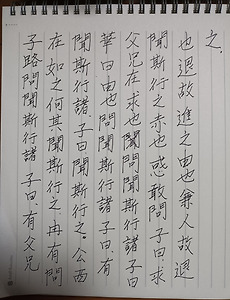 子路問聞斯行諸 子曰有父兄
在如之何其聞斯行之 冉有問
聞斯行諸 子曰聞斯行之 公西
華曰由也問聞斯行諸 子曰有
父兄在求也問聞斯行諸 子曰
聞斯行之赤也惑敢問 子曰求
也退故進之由也兼人故退
之.